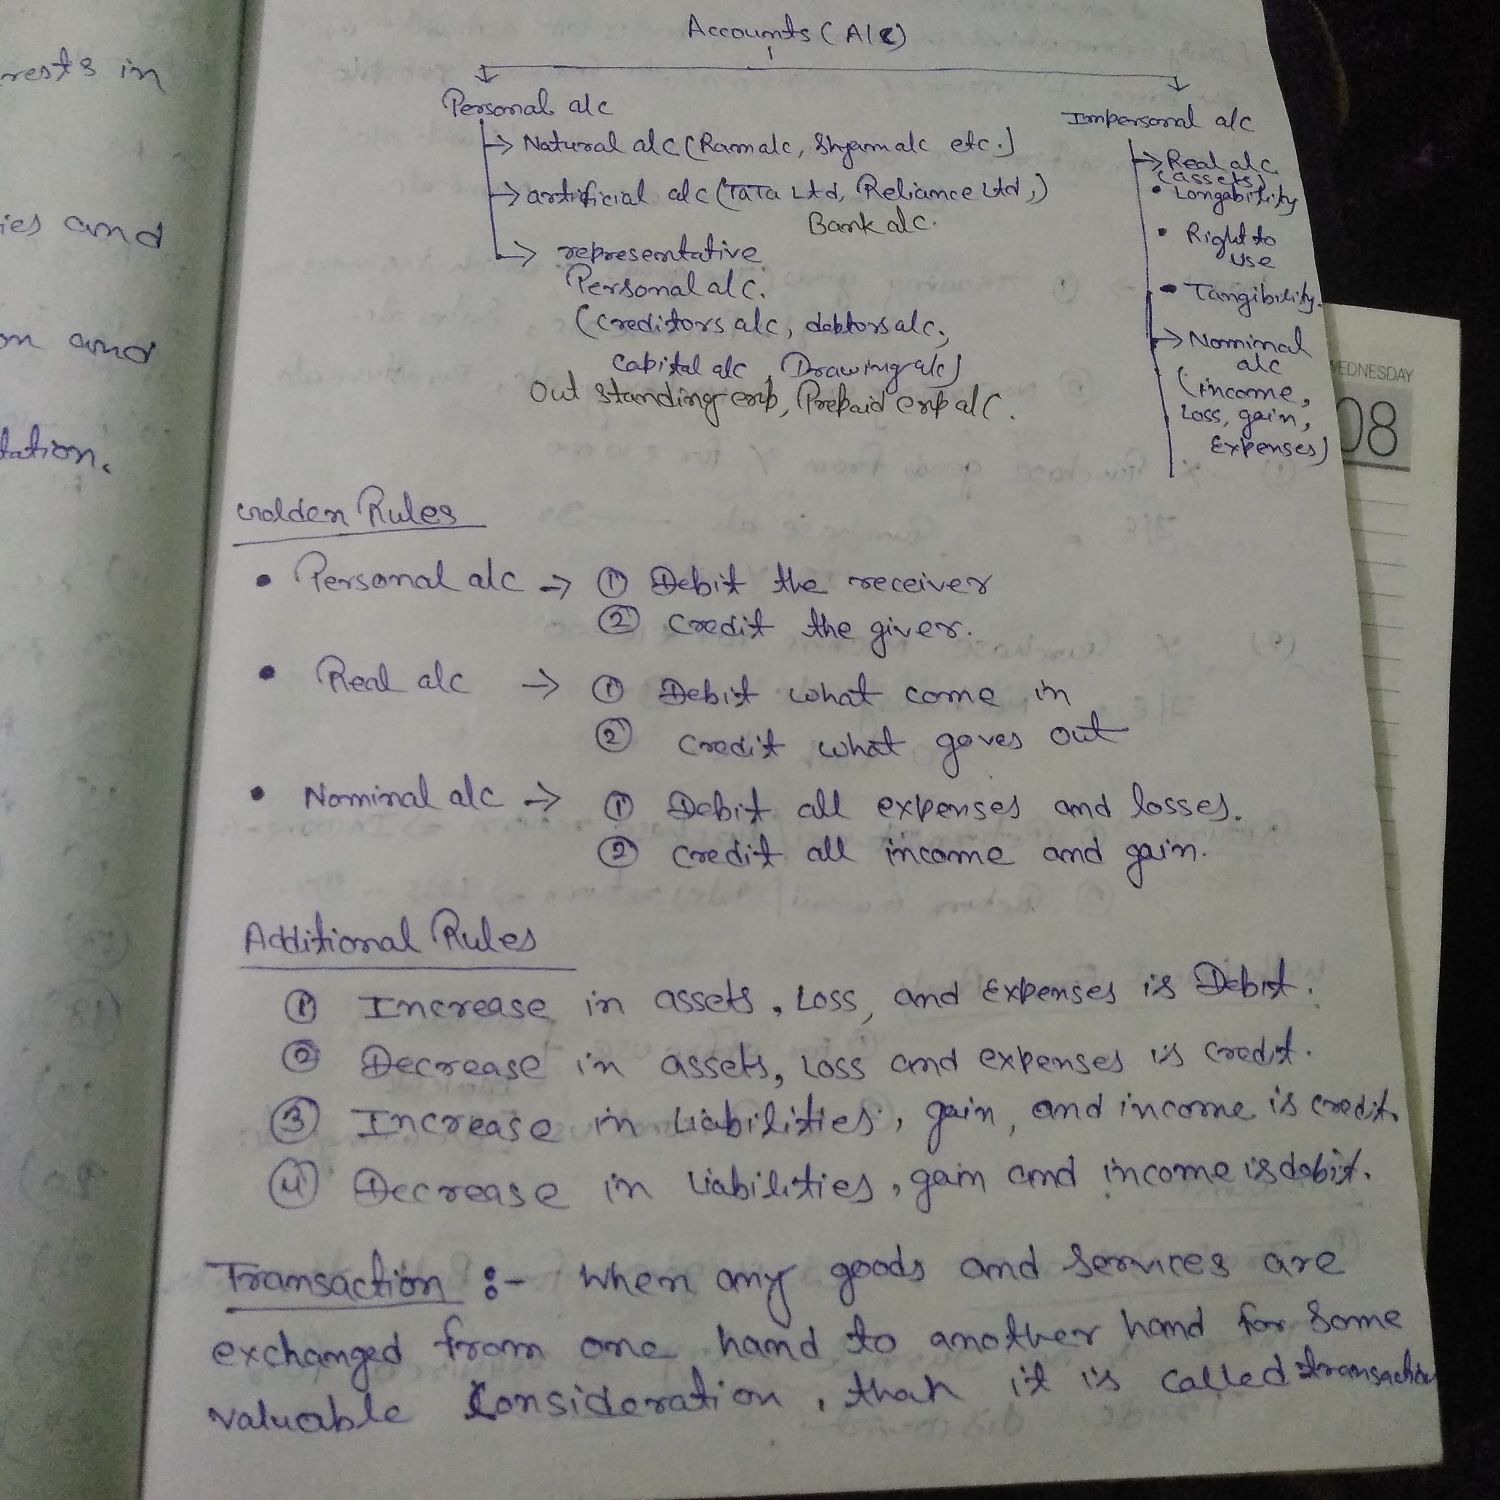 rests in
ies and
on and
tation.
Accounts (A/C)
Personal a/c
Natural a/c (Ram a/c, Shyam a/c etc.)
artificial a/c (TATA Ltd, Reliance Ltd,)
Bank a/c.
representative
Personal a/c.
(creditors a/c, debtors a/c,
Capital a/c, Drawing a/c)
Out standing exp, Prepaid exp a/c.
Impersonal a/c
Real a/c
(assets)
• Longability
• Right to
use
• Tangibility.
Nominal
a/c
(income,
Loss, gain,
Expenses)
WEDNESDAY
08
Golden Rules
• Personal a/c → ① Debit the receiver
② Credit the giver.
• Real a/c → ① Debit what come in
② Credit what goves out
• Nominal a/c → ① Debit all expenses and losses.
② Credit all income and gain.
Additional Rules
① Increase in assets, Loss, and Expenses is Debit.
② Decrease in assets, Loss and expenses is credit.
③ Increase in Liabilities, gain, and income is credit.
④ Decrease in Liabilities, gain and income is debit.
Transaction :- When any goods and Services are
exchanged from one hand to another hand for Some
valuable Consideration, than it is called transaction